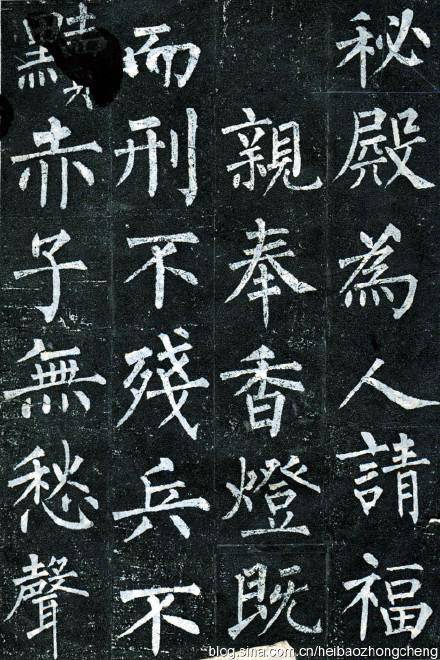 秘殿為人請福
親奉香燈既
而刑不殘兵不
黷赤子無愁聲
blog.sina.com.cn/heibaozhongcheng